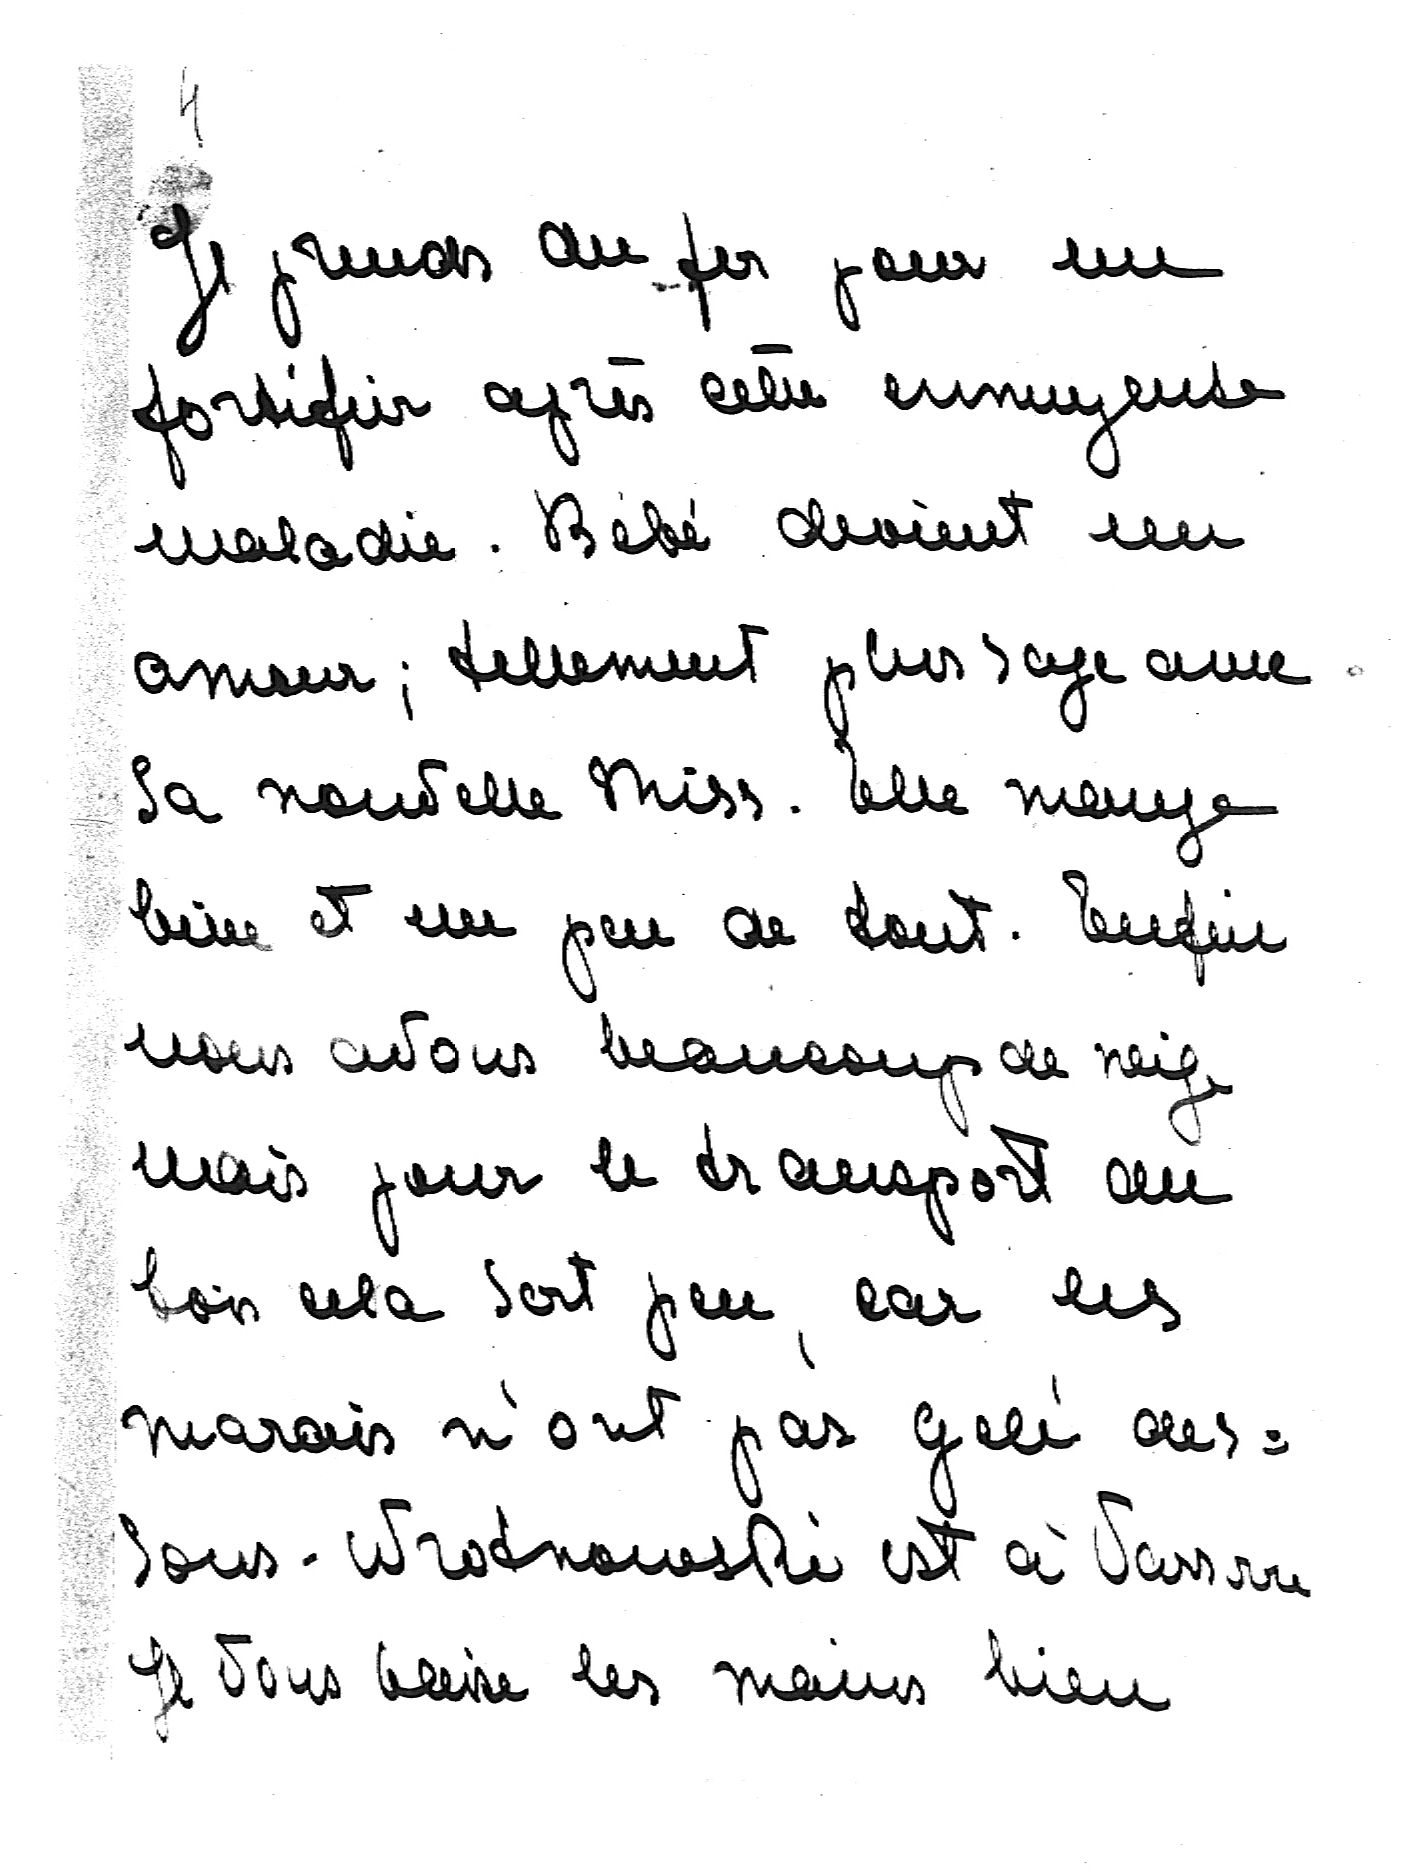 4
Je prends du fer pour me
fortifier après cette ennuyeuse
maladie. Bébé devient un
amour; tellement plus sage avec
sa nouvelle Miss. Elle mange
bien et un peu de tout. Enfin
nous avons beaucoup de neige
mais pour le transport du
bois cela sert peu, car les
marais n'ont pas gelé des=
sous. Wrotnowski est à
Je vous baise les mains bien